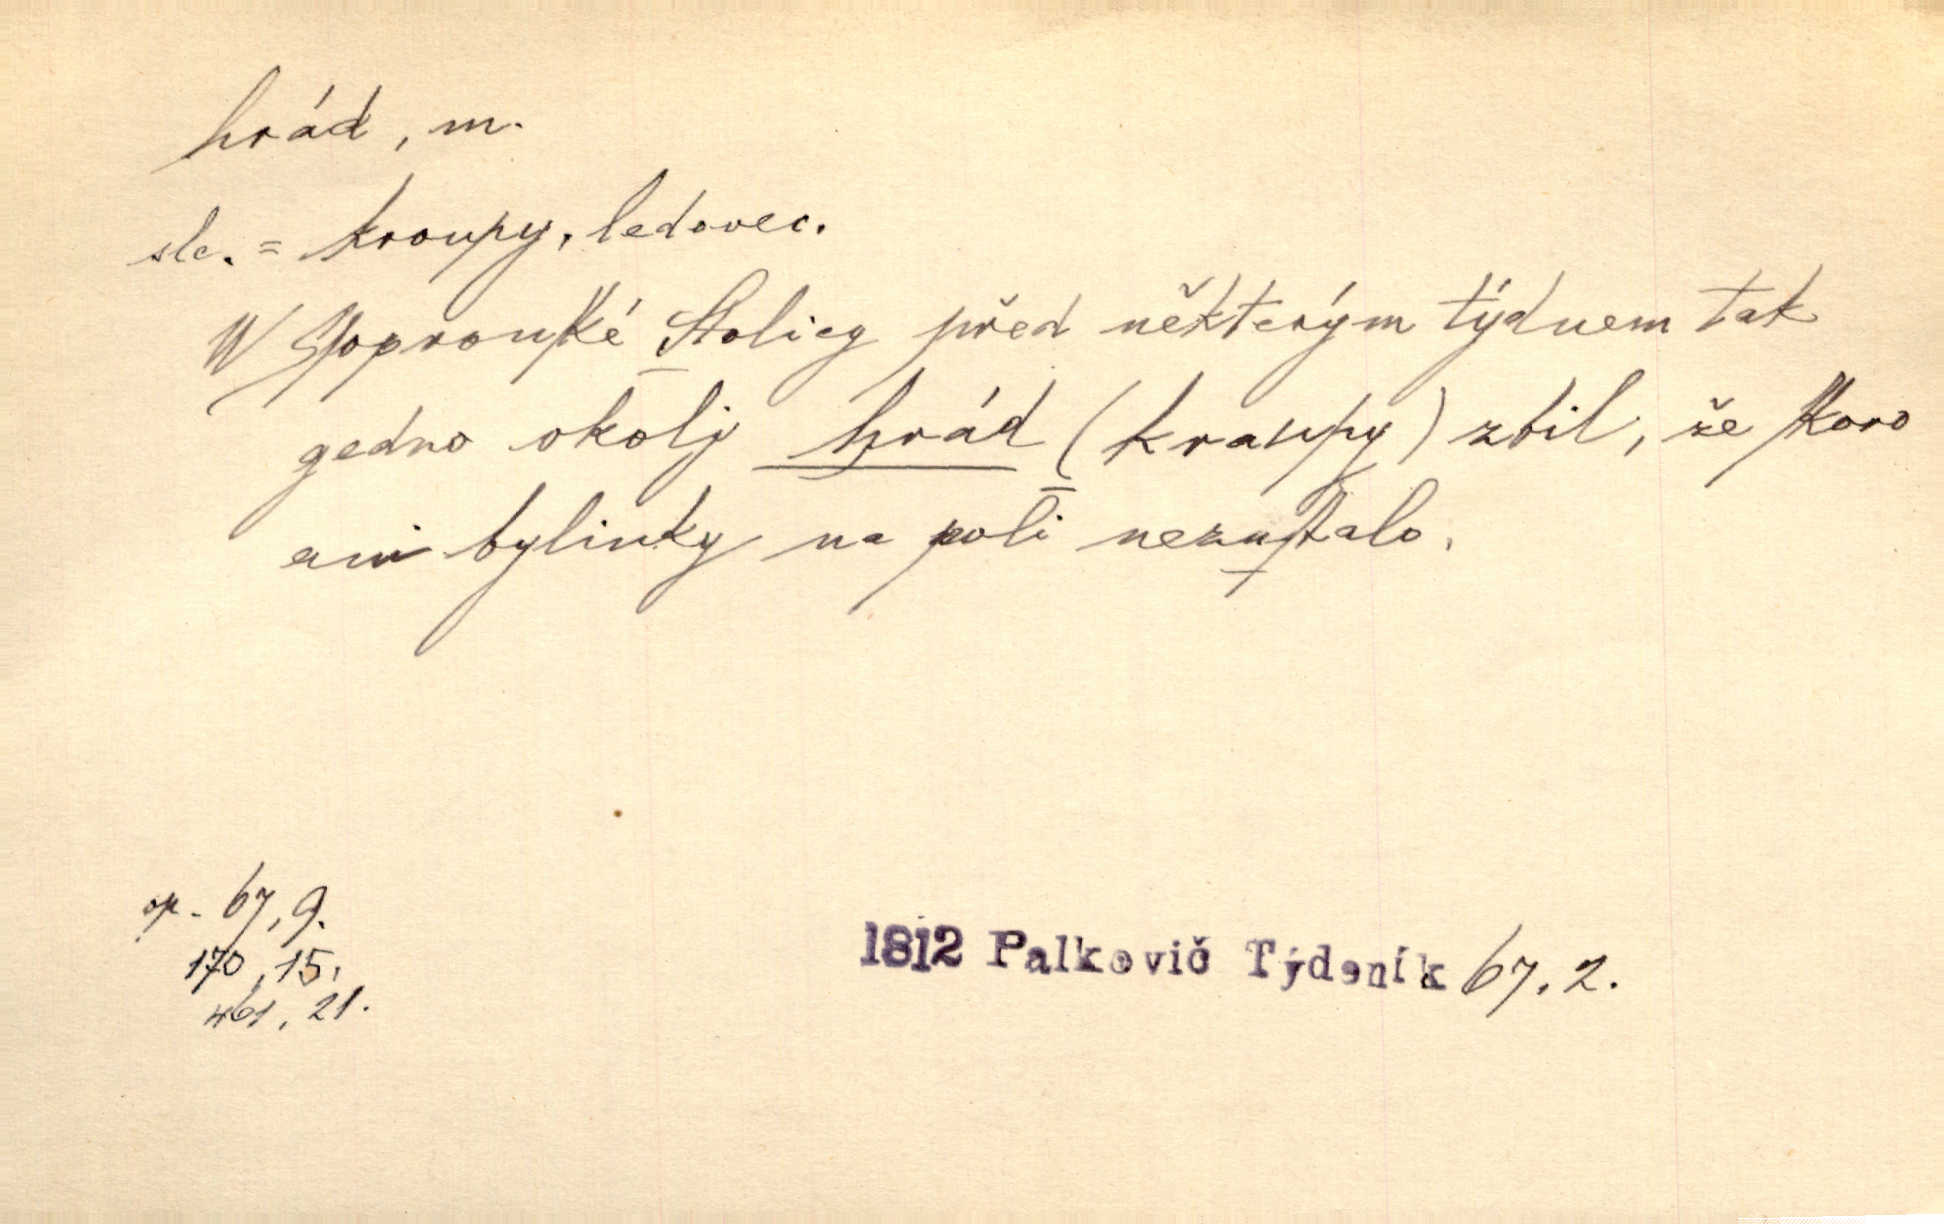 hrád, m.
slc. = kroupy, ledovec.
W Ssopronſké Stolicy před některým týdnem tak
gedno okolj hrád (kraupy) zbil, že ſkoro
ani bylinky na poli nezuſtalo.
op. 67, 9.
170, 15.
461, 21.
1812 Palkovič Týdeník 67, 2.